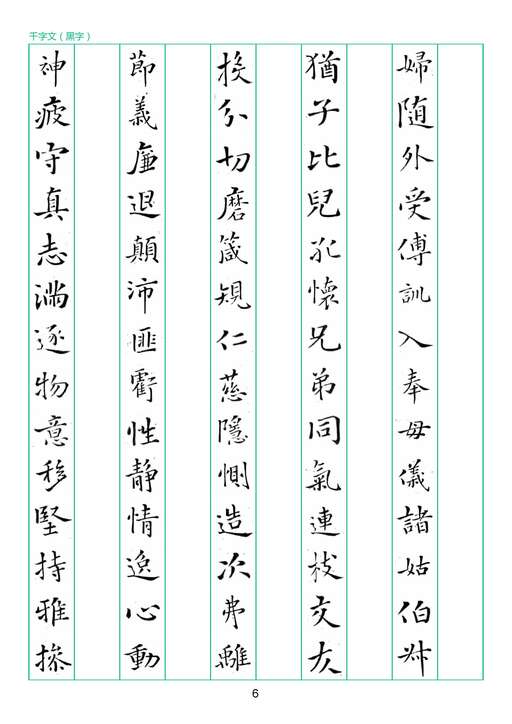 千字文（黒字）
婦随外受傅訓入奉母儀諸姑伯叔
猶子比兒孔懷兄弟同氣連枝交友
投分切磨箴規仁慈隱惻造次弗離
節義廉退顛沛匪虧性静情逸心動
神疲守真志満逐物意移堅持雅操
6